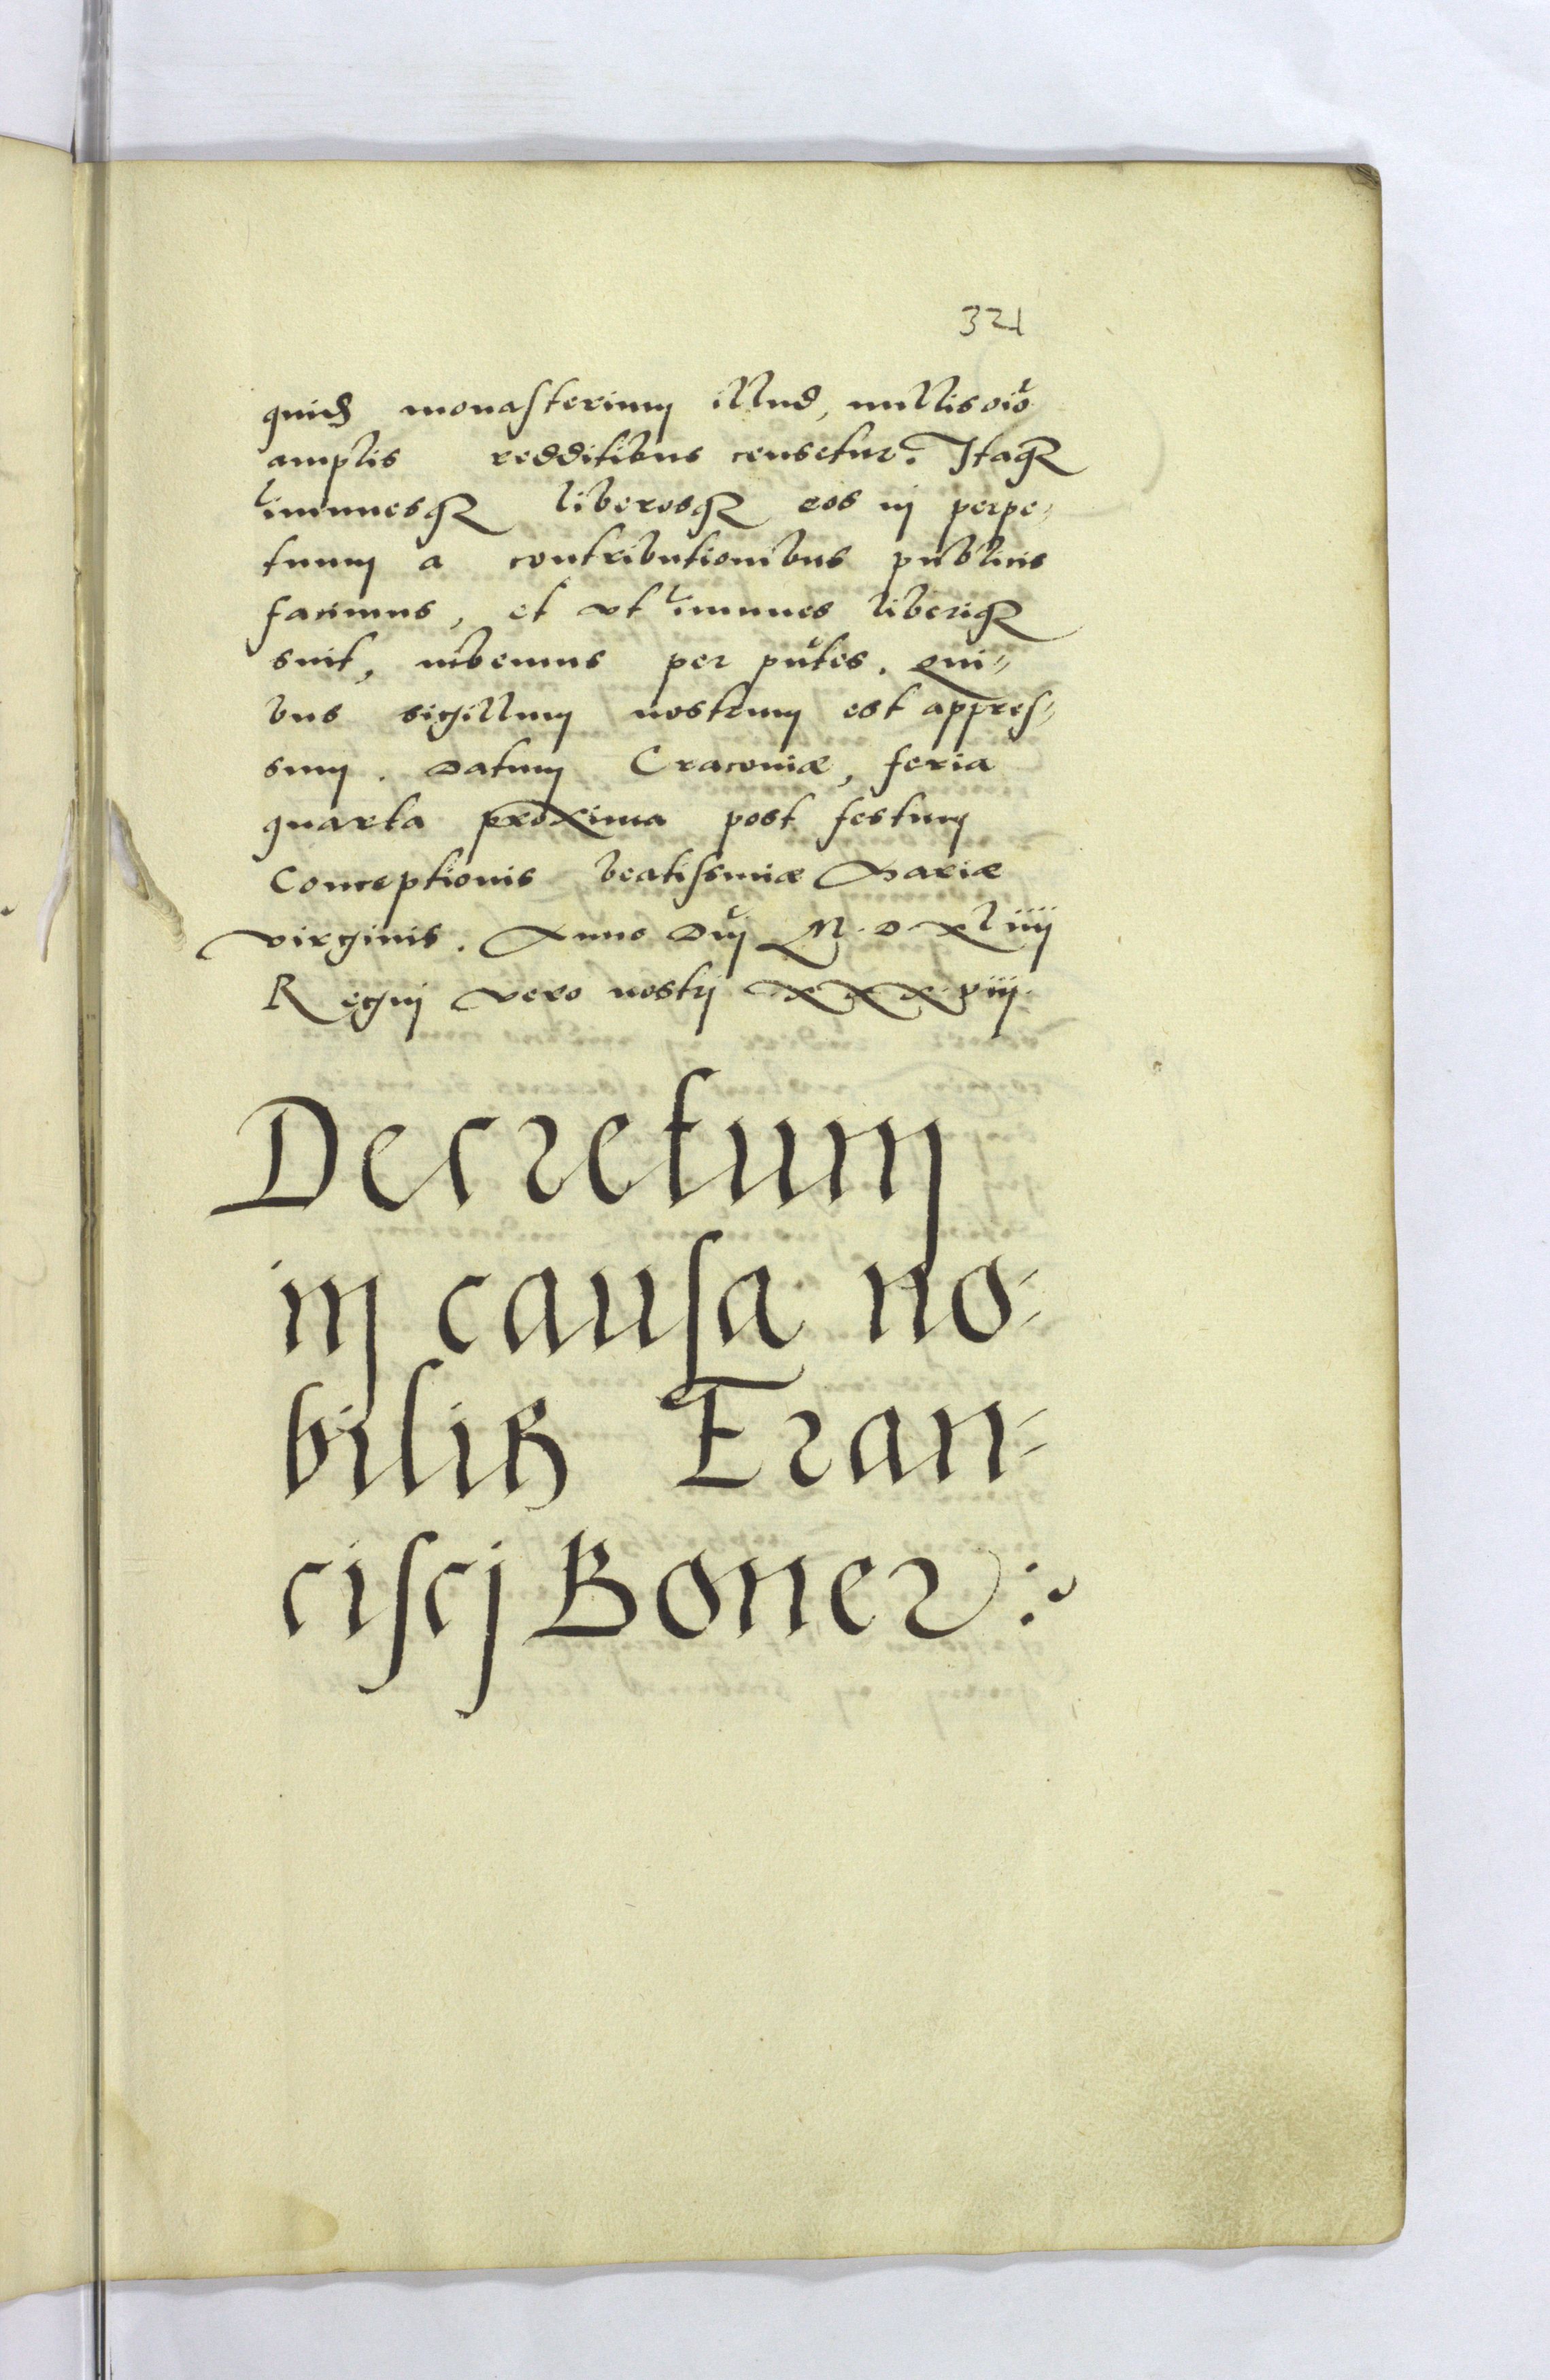 321
quidē monasterium illud, nullis oīo
amplis redditibus censetur. Itaq̃
im̃unesq̃ liberosq̃ eos in perpe-
tuum a contributionibus publicis
facimus, et vt im̃unes liberiq̃
sint, iubemus per pñtes. Qui-
bus sigillum nostrum est appres-
sum. Datum Cracoviæ, feria
quarta proxima post festum
Conceptionis beatissimæ Mariæ
virginis. Anno Dñi M.D.xliiij
Regni vero nostri xxxviij.
Decretum
in causa no-
bilis Fran-
cisci Boner